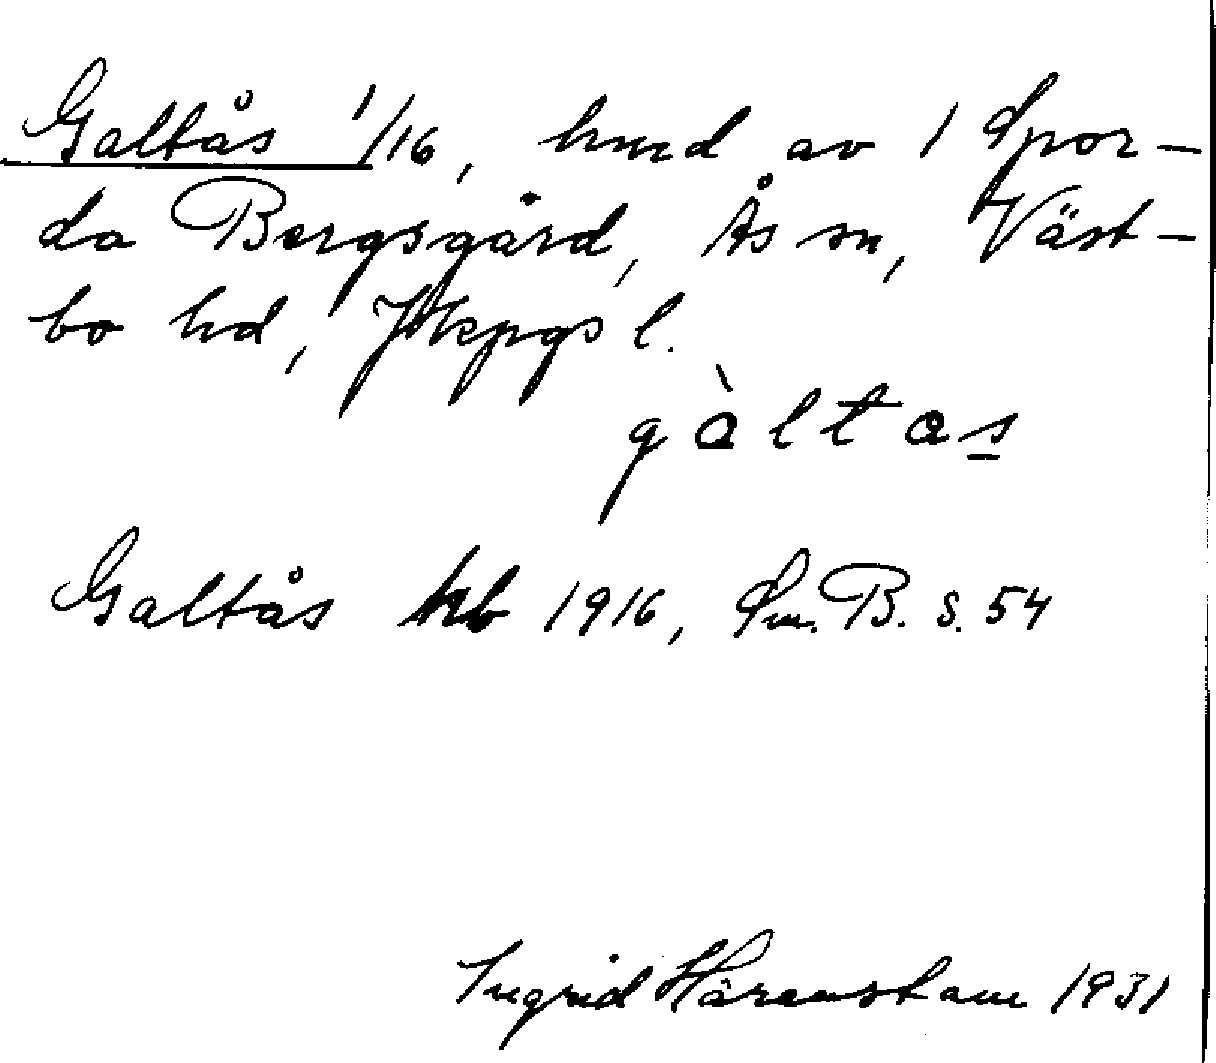 Galtås 1/16, hmd av 1 Spor-
da Bergsgård, Ås sn, Väst-
bo hd, Jkpgs l.
gàltas
Galtås kb 1916, Sm. B. s. 54
Ingrid Härenstam 1931